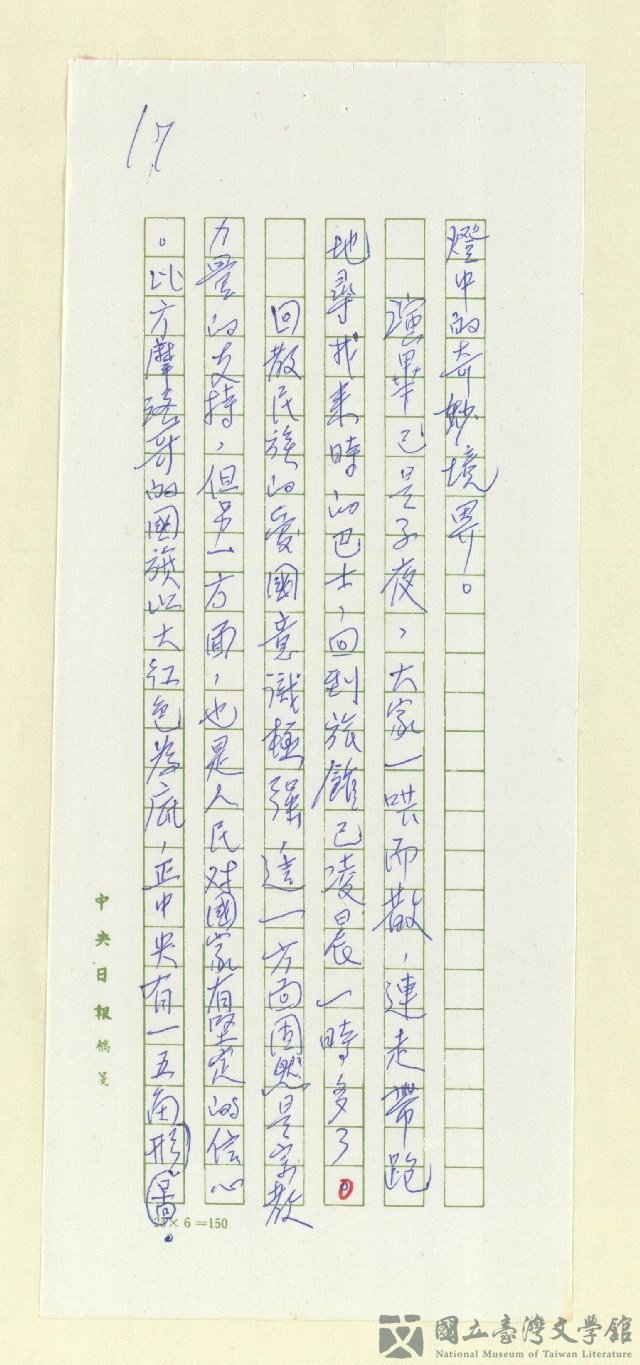 17
燈中的奇妙境界。
演畢已是子夜，大家一哄而散，連走帶跑
地尋找來時的巴士，回到旅館已凌晨一時多了。
回教民族的愛國意識極強，這一方面固然是宗教
力量的支持，但另一方面，也是人民對國家有堅定的信心
。比方摩洛哥的國旗以大紅色為底，正中央有一五角形
中央日報稿箋
25×6=150
國立臺灣文學館
National Museum of Taiwan Literature